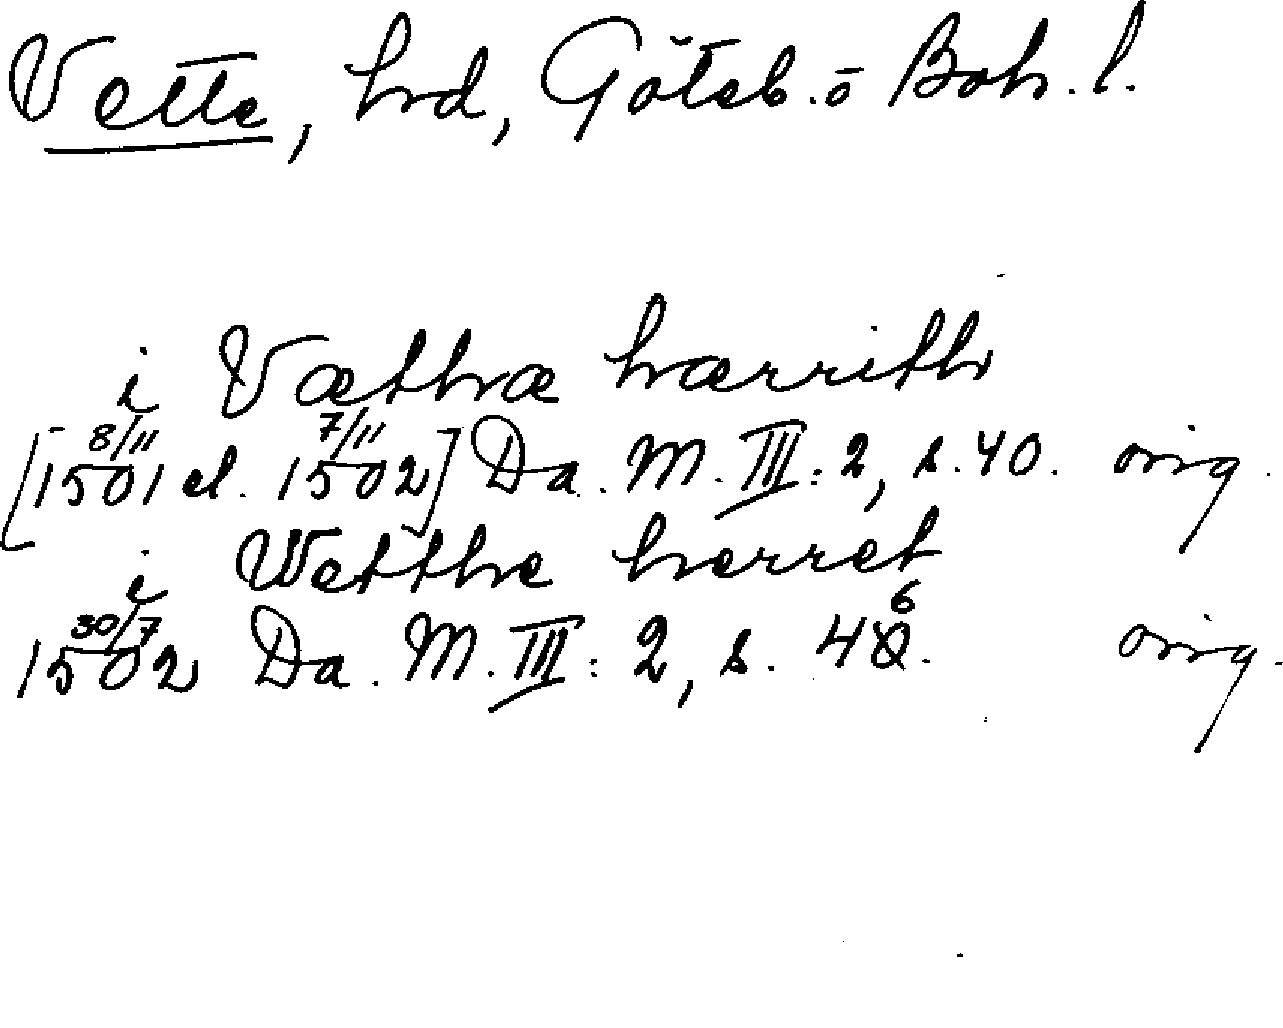 Vette, hrd, Göteb. o Boh. l.
i Væthæ hærrith
[8/11 1501 el. 7/11 1502] Da. M. III: 2, s. 40. orig.
i Wetthe herret
30/7 1502 Da. M. III: 2, s. 46. orig.